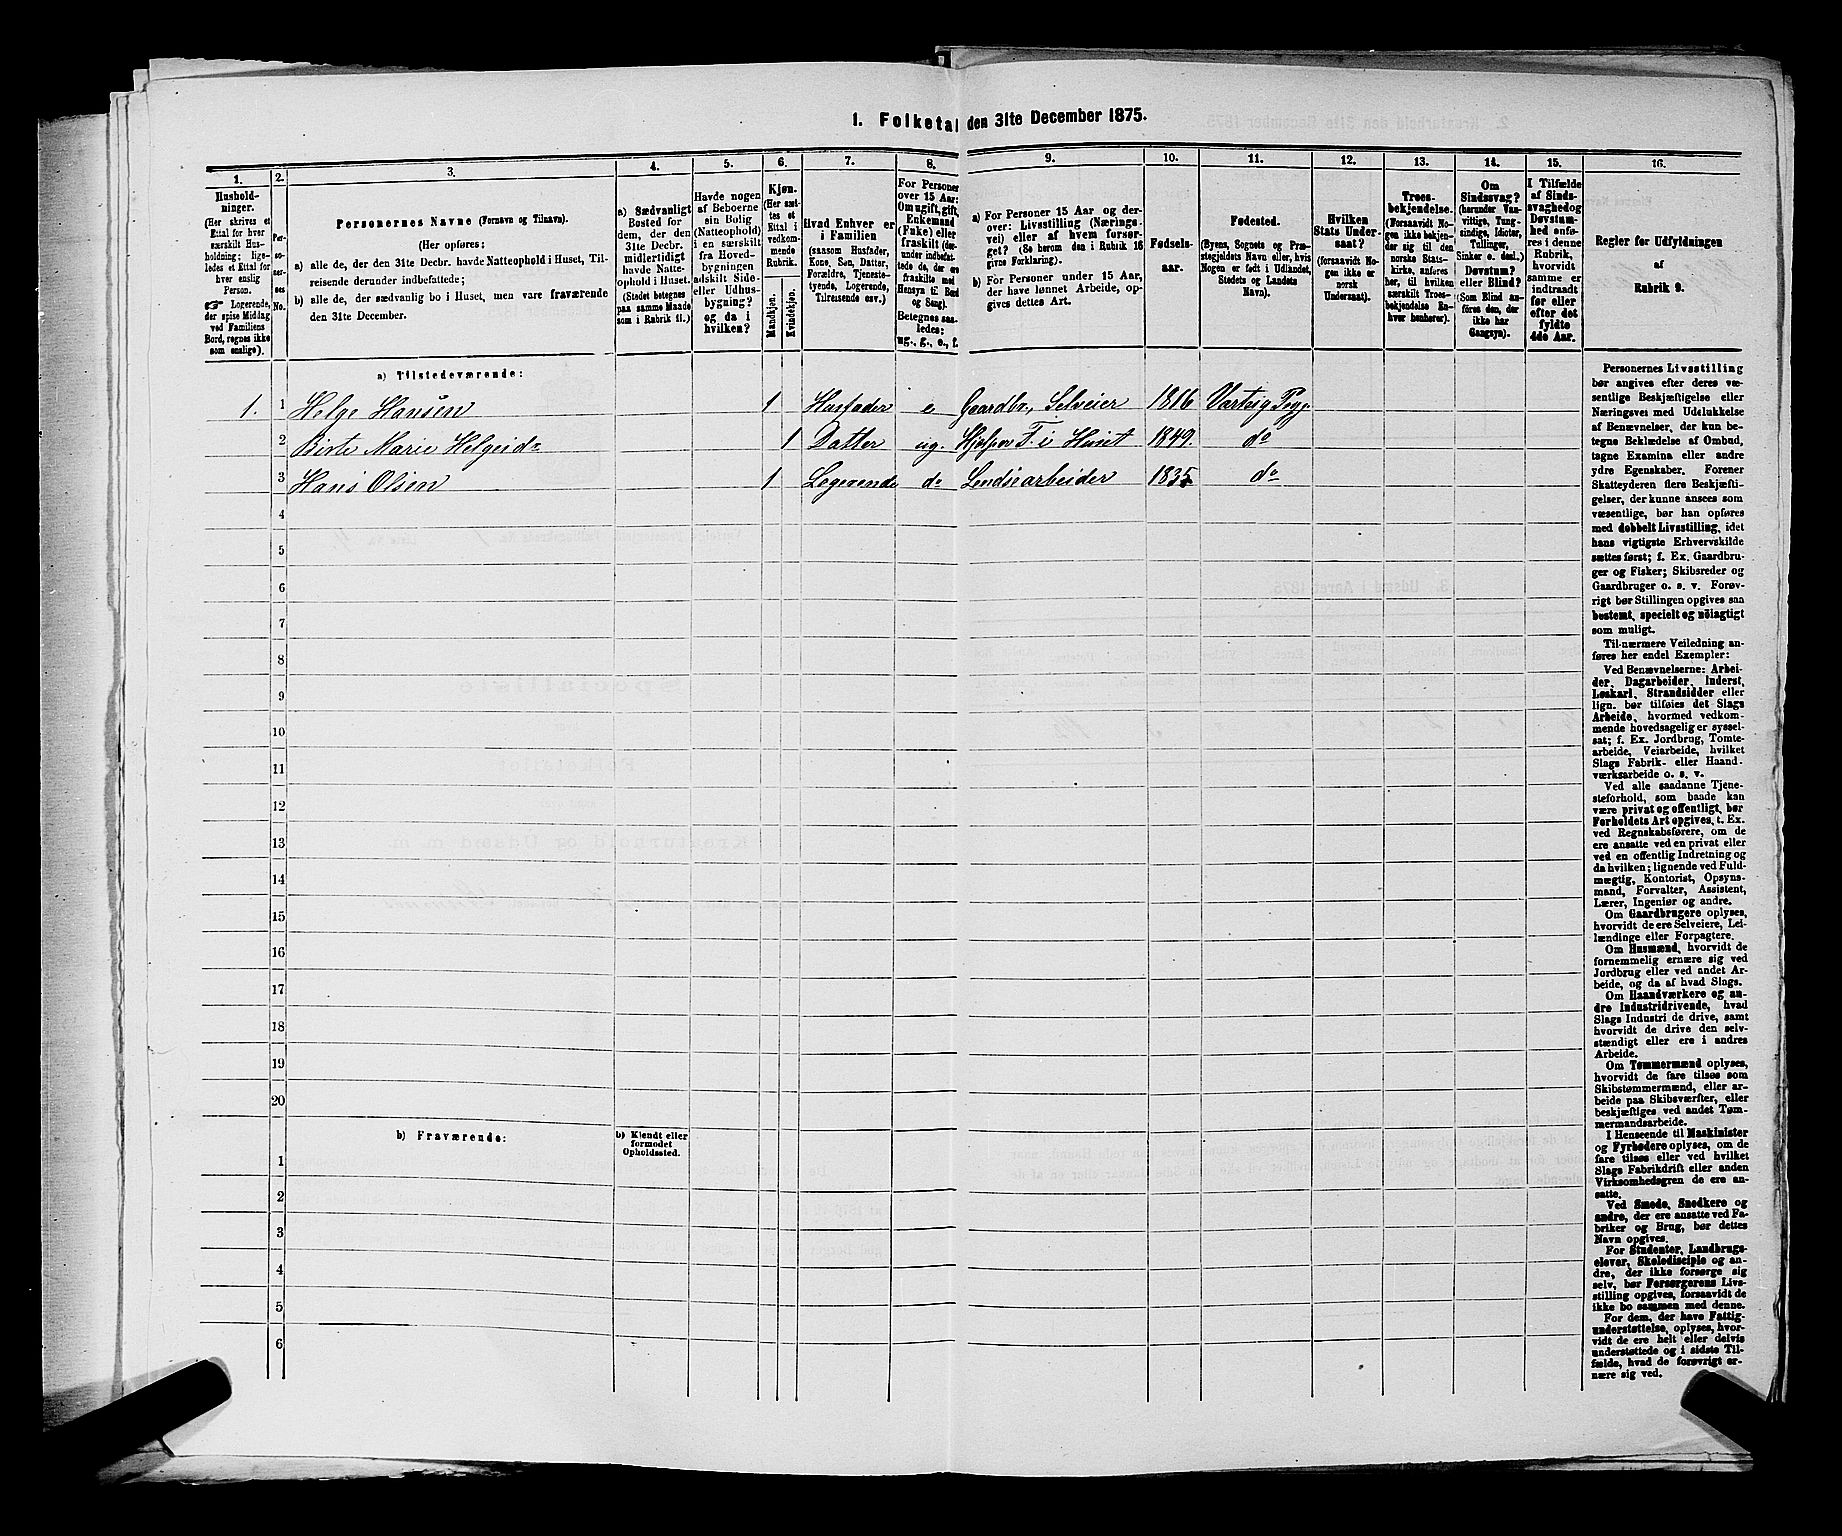 1. Folketal den 31te December 1875.
1.
2.
3.
4.
5.
6.
7.
8.
9.
10.
11.
12.
13.
14.
15.
16.
Husholdninger.
(Her skrives et
Ettal for hver
særskilt Husholdning; ligeledes et Ettal for
hver enslig
Person.
☞ Logerende,
der spise Middag
ved Familiens
Bord, regnes ikke
som enslige).
Personernes No.
Personernes Navne (Fornavn og Tilnavn).
(Her opføres:
a) alle de, der den 31te Decbr. havde Natteophold i Huset, Tilreisende derunder indbefattede;
b) alle de, der sædvanlig bo i Huset, men vare fraværende
den 31te December.
a) Sædvanligt
Bosted for
dem, der den
31te Decbr.
midlertidigt
havde Natteophold i Huset.
(Stedet betegnes
paa samme Maade
som i Rubrik 11.)
Havde nogen
af Beboerne
sin Bolig
(Natteophold)
i en særskilt
fra Hovedbygningen
adskilt Side-
eller Udhusbygning?
og da i
hvilken?
Kjøn.
(Her sættes et
Ettal i
vedkommende
Rubrik.
Mandkjøn.
Kvindekjøn.
Hvad Enhver er
i Familien
(saasom Husfader,
Kone, Søn, Datter,
Forældre, Tjenestetyende, Logerende,
Tilreisende osv.)
For Personer
over 15 Aar:
Om ugift, gift,
Enkemand
(Enke) eller
fraskilt (derunder indbefattede de, der ere
fraskilte med
Hensyn til Bord
og Seng).
Betegnes saaledes:
ug., g., e., f.
a) For Personer 15 Aar og derover: Livsstilling (Næringsvei) eller af hvem forsørget? (Se herom den i Rubrik 16
givne Forklaring).
b) For Personer under 15 Aar,
der have lønnet Arbeide, opgives dettes Art.
Fødselsaar.
Fødested.
(Byens, Sognets og Præstegjeldets Navn eller, hvis
Nogen er født i Udlandet,
Stedets og Landets
Navn).
Hvilken
Stats Undersaat?
(forsaavidt Nogen ikke er
norsk
Undersaat).
Troesbekjendelse.
(Forsaavidt Nogen ikke bekjender sig til
den norske Statskirke, anføres
her, til hvilken
særskilt Troesbekjendelse Enhver henhører).
Om
Sindssvag?
(herunder Vanvittige, Tungsindige, Idioter,
Tullinger,
Sinker o. desl.)
Døvstum?
eller Blind?
(Som Blind anføres den, der
ikke har
Gangsyn).
I Tilfælde
af Sindssvaghed og
Døvstumhed anføres i denne
Rubrik,
hvorvidt
samme er
indtraadt
før eller
efter det
fyldte
4de Aar.
Regler for Udfyldningen
af
Rubrik 9.
a) Tilstedeværende:
1. 1 Helge Hansen 1 Husfader e Gaardbr., Selveier 1816 Varteig Prgj.
2 Birte Marie Helgesdr 1 Datter ug. Hjelper T. i Huset 1849. do
3 Hans Olsen 1 Logerende do Landarbeider 1835 do
4
5
6
7
8
9
10
11
12
13
14
15
16
17
18
19
20
b) Fraværende:
b) Kjendt eller
formodet
Opholdssted.
1
2
3
4
5
6
Personernes Livsstilling
bør angives efter deres væsentlige Beskjæftigelse eller
Næringsvei med Udelukkelse
af Benævnelser, der kun betegne Beklædelse af Ombud,
tagne Examina eller andre
ydre Egenskaber. Forener
Skatteyderen flere Beskjæftigelser, der kunne ansees som
væsentlige, bør han opføres
med dobbelt Livsstilling, idet
hans vigtigste Erhvervskilde
sættes først; f. Ex. Gaardbruger og Fisker; Skibsreder og
Gaardbruger o. s. v. Forøvrigt bør Stillingen opgives saa
bestemt, specielt og nöiagtigt
som muligt.
Til nærmere Veiledning anføres her endel Exempler:
Ved Benævnelserne: Arbeider, Dagarbeider, Inderst,
Løskarl, Strandsidder eller
lign. bør tilføies det Slags
Arbeide, hvormed vedkommende hovedsagelig er sysselsat; f. Ex. Jordbrug, Tomtearbeide, Veiarbeide, hvilket
Slags Fabrik- eller Haandværksarbeide o. s. v.
Ved alle saadanne Tjenesteforhold, som baade kan
være privat og offentligt, bør
Forholdets Art opgives, f. Ex.
ved Regnskabsførere, om de
ere ansatte ved en privat eller
ved en offentlig Indretning og
da hvilken; lignende ved Fuldmægtig, Kontorist, Opsynsmand, Forvalter, Assistent,
Lærer, Ingeniør og andre.
Om Gaardbrugere oplyses,
hvorvidt de ere Selveiere, Leilændinge eller Forpagtere.
Om Husmænd, hvorvidt de
fornemmelig ernære sig ved
Jordbrug eller ved andet Arbeide, og da af hvad Slags.
Om Haandværkere og andre industridrivende, hvad
Slags Industri de drive, samt
hvorvidt de drive den selvstændigt eller ere i andres
Arbeide.
Om Tømmermænd oplyses,
hvorvidt de fare tilsøs som
Skibstømmermænd, eller arbeide paa Skibsværfter, eller
beskjæftiges ved andet Tømmermandsarbeide.
I Henseende til Maskinister
og Fyrbødere oplyses, om de
fare tilsøs eller ved hvilket
Slags Fabrikdrift eller anden
Virksomhedsgren de ere ansatte.
Ved Smede, Snedkere og
andre, der ere ansatte ved Fabriker og Brug, bør dettes
Navn opgives.
For Studenter, Landbrugselever, Skoledisciple og andre, der ikke forsørge sig
selv, bør Forsørgerens Livsstilling opgives, forsaavidt de
ikke bo sammen med denne.
For dem, der have Fattigunderstøttelse, oplyses, hvorvidt de ere helt eller delvis
understøttede og i sidste Tilfælde, hvad de forøvrigt ernære sig ved.